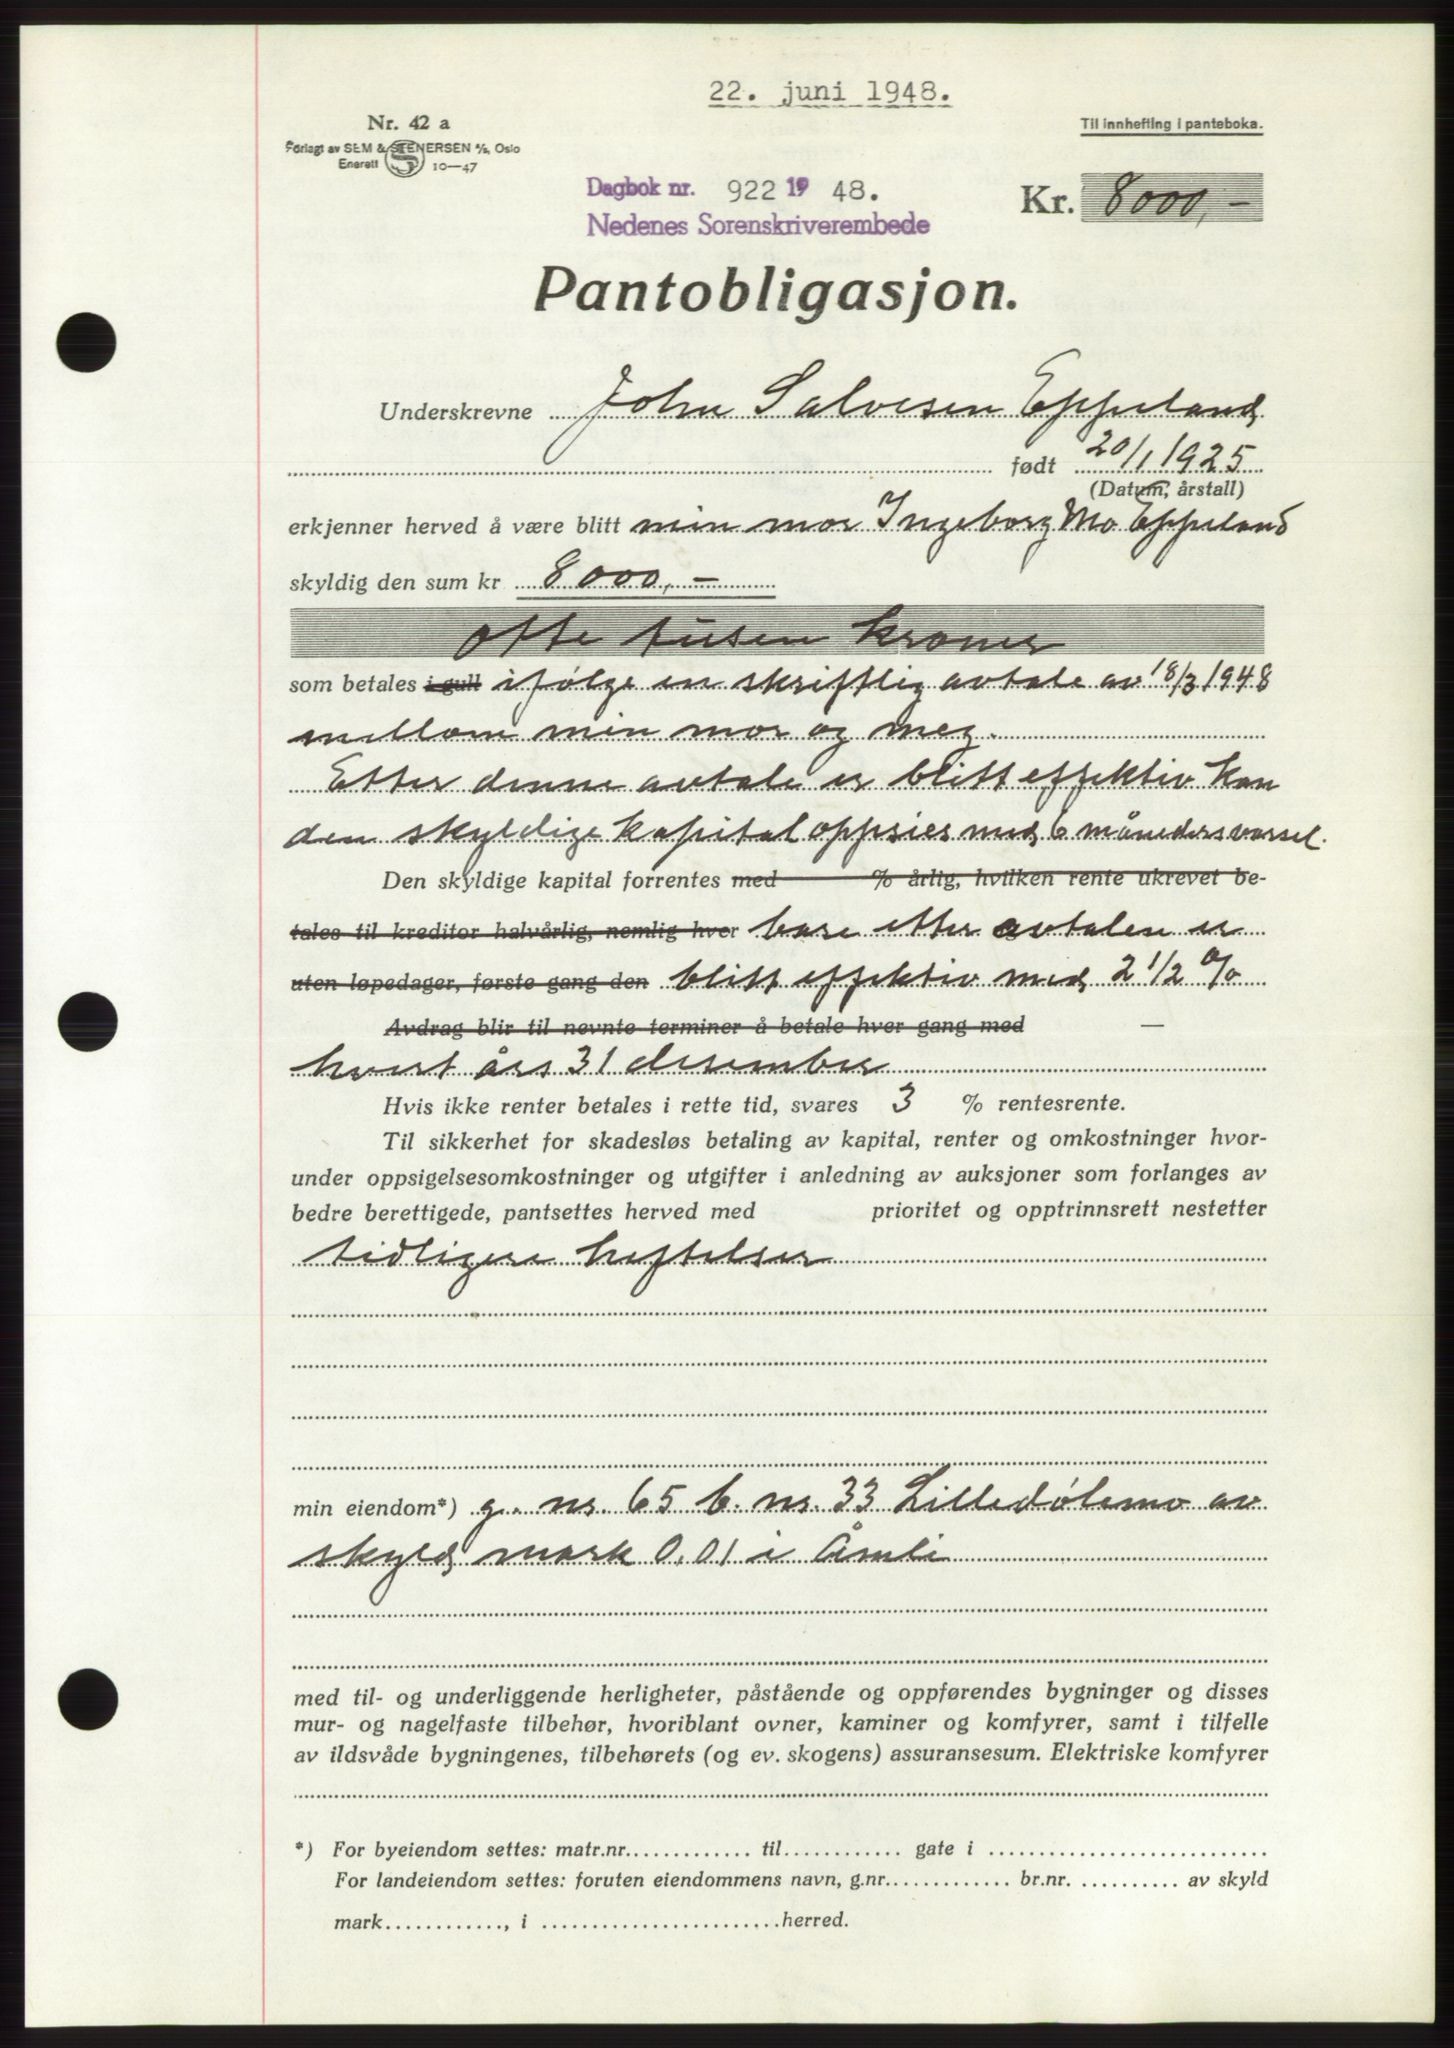 22. juni 1948.
Nr. 42 a
Til innhefting i panteboka.
Forlagt av SEM & STENERSEN A/S, Oslo
Enerett S 10—47
Dagbok nr. 922 1948.
Kr. 8000,-
Nedenes Sorenskriverembede
Pantobligasjon.
Underskrevne John Salvesen Eppeland
født 20/1 1925
(Datum, årstall)
erkjenner herved å være blitt min mor Ingeborg Mo Eppeland
skyldig den sum kr 8000,-
otte tusen kroner
som betales i gull ifølge en skriftlig avtale av 18/3 1948
mellom min mor og meg.
Etter denne avtale er blitt effektiv kan
den skyldige kapital oppsies med 6 måneders varsel.
Den skyldige kapital forrentes med % årlig, hvilken rente ukrevet be-
tales til kreditor halvårlig, nemlig hver bare etter avtalen er
uten løpedager, første gang den blitt effektiv med 2 1/2 %
Avdrag blir til nevnte terminer å betale hver gang med —
hvert års 31 desember
Hvis ikke renter betales i rette tid, svares 3 % rentesrente.
Til sikkerhet for skadesløs betaling av kapital, renter og omkostninger hvor-
under oppsigelsesomkostninger og utgifter i anledning av auksjoner som forlanges av
bedre berettigede, pantsettes herved med prioritet og opptrinnsrett nestetter
tidligere heftelser
min eiendom*) g. nr. 65 b. nr. 33 Lilledølemo av
skyld mark 0.01 i Åmli
med til- og underliggende herligheter, påstående og oppførendes bygninger og disses
mur- og nagelfaste tilbehør, hvoriblant ovner, kaminer og komfyrer, samt i tilfelle
av ildsvåde bygningenes, tilbehørets (og ev. skogens) assuransesum. Elektriske komfyrer
*) For byeiendom settes: matr.nr............. til............ gate i ...........................
For landeiendom settes: foruten eiendommens navn, g.nr............. br.nr. .......... av skyld
mark............, i ........................herred.